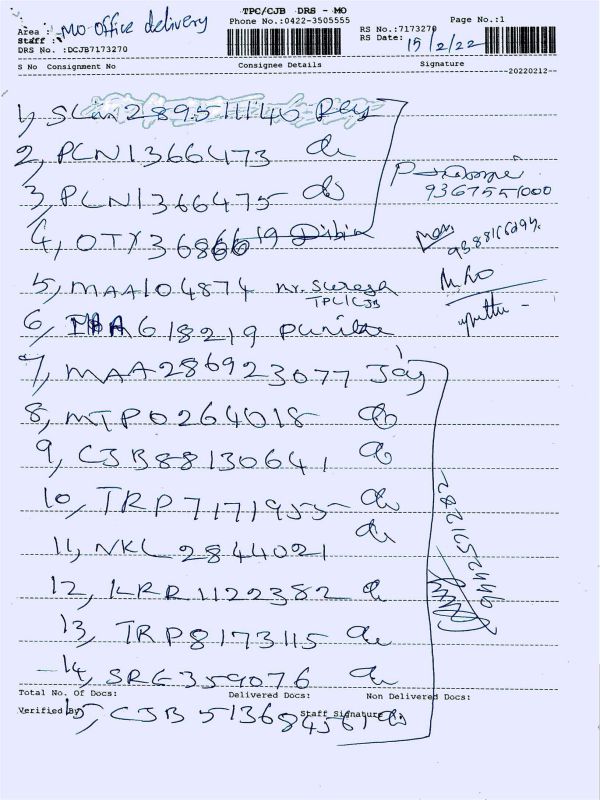 TPC/CJB DRS - MO
Phone No.:0422-3505555
Page No.:1
Area : MO office delivery
Staff :
DRS No. :DCJB7173270
RS No.:7173270
RS Date: 15/2/22
S No Consignment No Consignee Details Signature
20220212
1, 289511140
2, PCN1366473 do
3, PCN1366475 do
9367551000
4, OTY36866
5, MAA104874 Mr. Suresh
TPC/CJB
6, 618219
7, MAA286923077 Jay
8, MTP0264018 do
9, CJB88130641 do
10, TRP7171953 do
11, NKL2844021 do
12, KRR1122382 do
13, TRP8173115 do
14, SRE359076 do
Total No. Of Docs: Delivered Docs: Non Delivered Docs:
Verified By
Staff Signature
15, CJB513684561 do